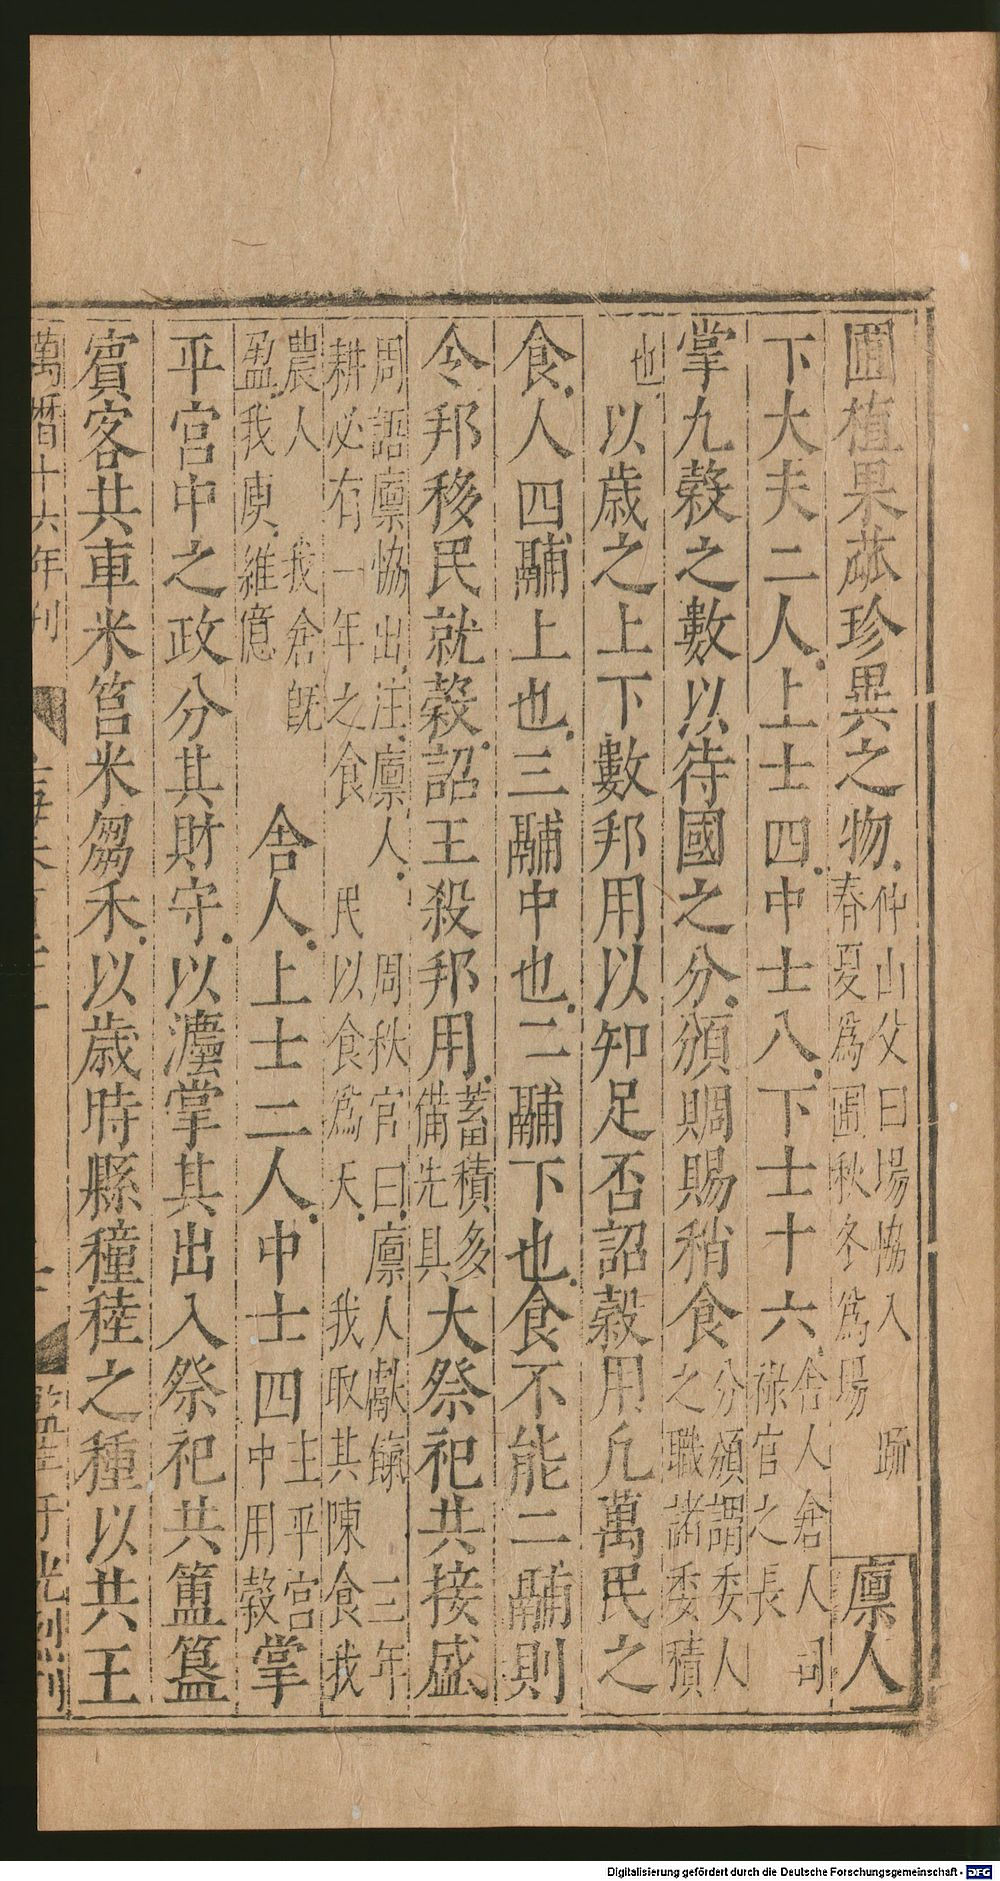 圃植果蓏珍異之物仲山父曰場協入春夏爲圃秋冬爲場 廩人
下大夫二人上士四中士八下士十六舍人倉人司祿官之長
掌九穀之數以待國之分頒賙賜稍食分頒謂委人之職諸委積
也以歲之上下數邦用以知足否詔穀用凡萬民之
食人四鬴上也三鬴中也二鬴下也食不能二鬴則
令邦移民就穀詔王殺邦用蓄積多備先具大祭祀共接盛
周語廩協出注廩人 周秋官曰廩人獻餼 三年
耕必有一年之食 民以食爲天 我取其陳食我
農人 我倉既
盈我庾維億 舍人上士二人中士四主平宮中用穀掌
平宮中之政分其財守以灋掌其出入祭祀共簠簋
賓客共車米筥米芻禾以歲時縣穜稑之種以共王
萬曆十六年刊
Digitalisierung gefördert durch die Deutsche Forschungsgemeinschaft - DFG